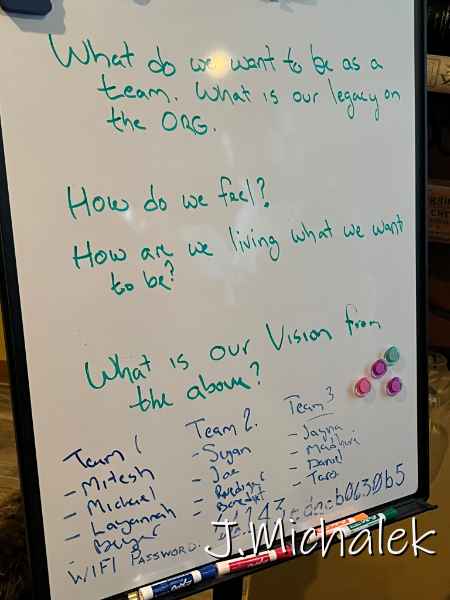 What do we want to be as a
team. What is our legacy on
the ORG.
How do we feel?
How are we living what we want
to be?
What is our Vision from
the above?
Team 1
- Mitesh
- Michael
- Layannah
Team 2.
- Susan
- Joe
- Benedict
Team 3
- Jayna
- Madhuri
- Daniel
- Tara
WIFI PASSWORD:
J.Michalek